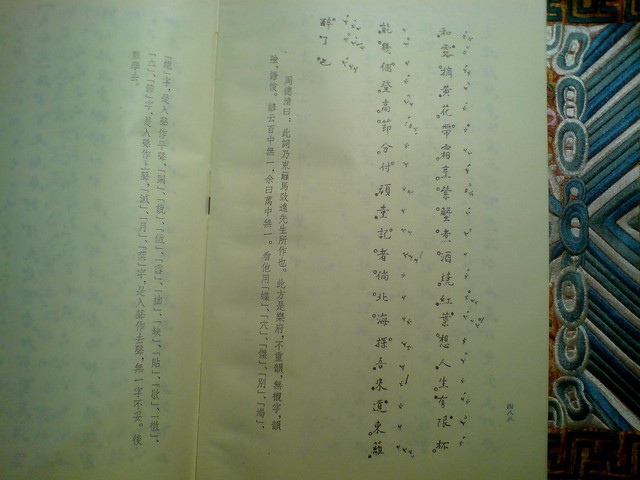 和露摘黃花帶霜烹紫蟹煮酒燒紅葉想人生有限杯
能幾個登高節分付頑童記者倘北海探吾來道東籬
醉了也
周德清曰:此詞乃東籬馬致遠先生所作也。此方是樂府,不重韻,無襯字,韻
險,語俊。諺云百中無一,余曰萬中無一。看他用「蝶」、「穴」、「傑」、「別」、「竭」、
「絕」字,是入聲作平聲,「闕」、「說」、「鐵」、「雪」、「拙」、「缺」、「貼」、「歇」、「徹」、
「血」、「節」字,是入聲作上聲,「滅」、「月」、「葉」字,是入聲作去聲,無一字不妥。後
輩學去。
四八八